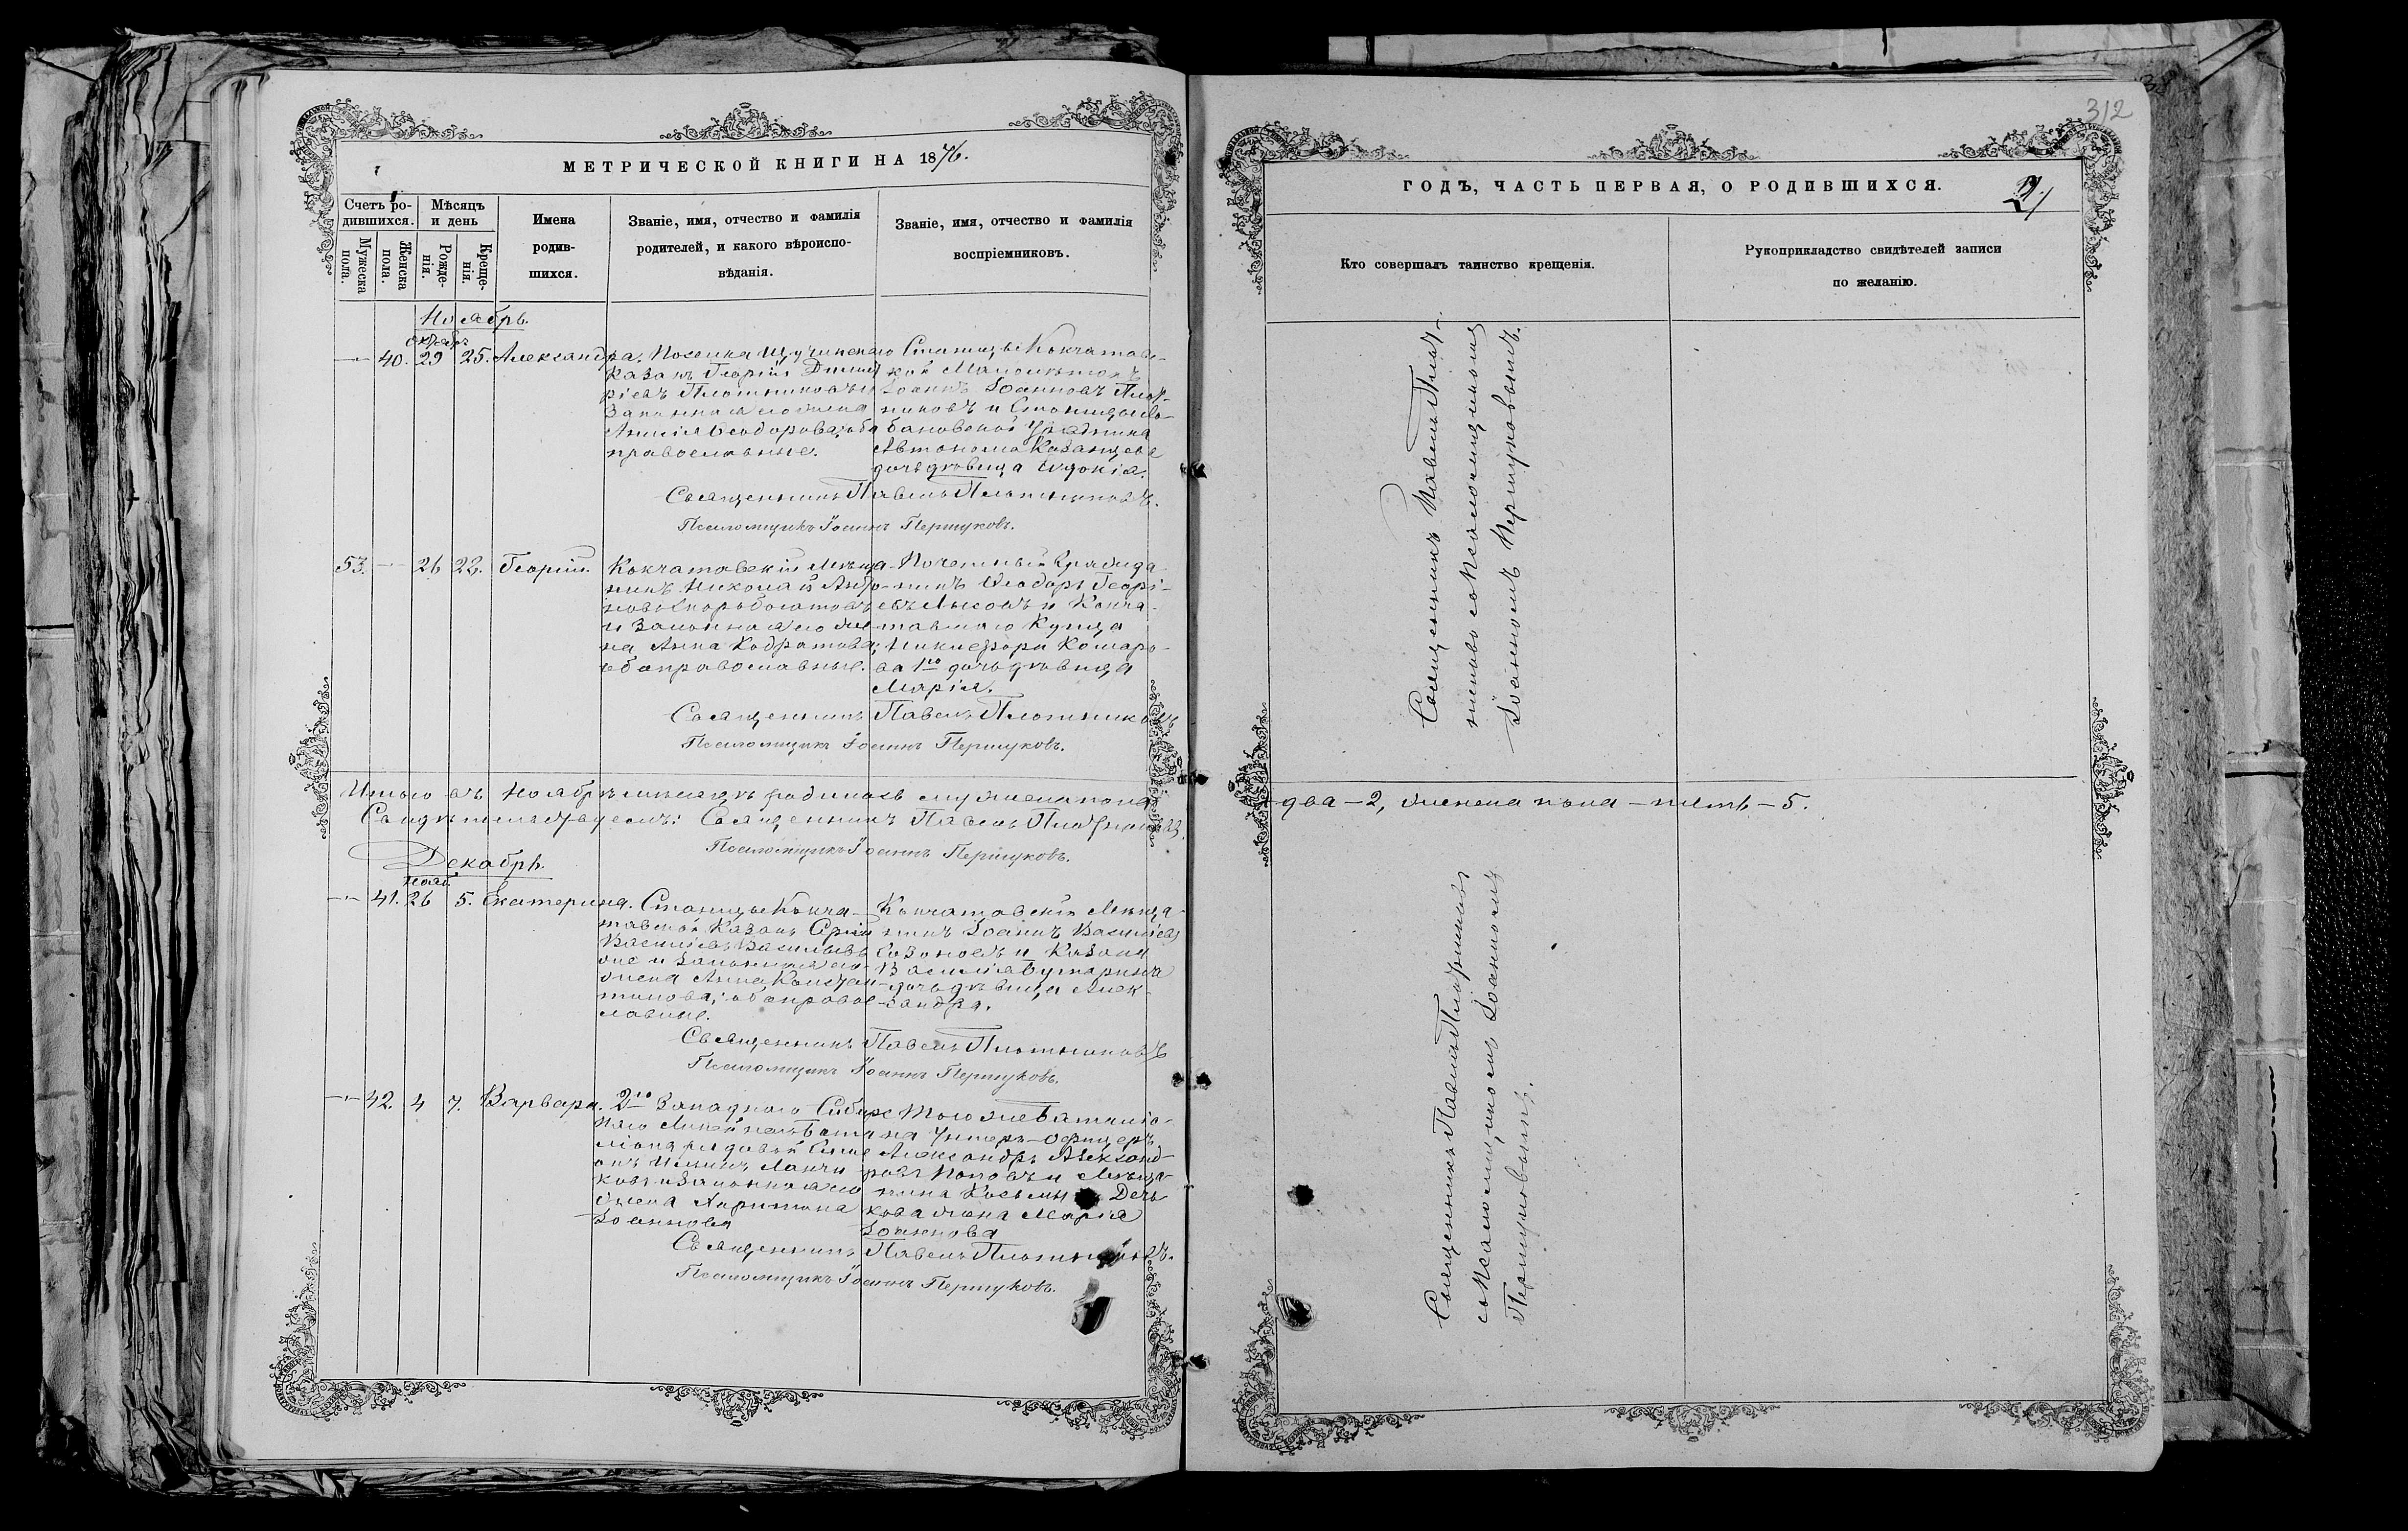 МЕТРИЧЕСКОЙ КНИГИ НА 1876.
Счетъ ро-
дившихся.
Мѣсяцъ
и день
Мужеска
пола.
Женска
пола.
Рожде-
нія.
Креще-
нія.
Имена
родив-
шихся.
Званіе, имя, отчество и фамилія
родителей, и какого вѣроиспо-
вѣданія.
Званіе, имя, отчество и фамилія
воспріемниковъ.
Ноябрь.
Октябрь
40. 29 25. Александра.
Поселка Щучинскаго
Казакъ Георгій Димит
ріевъ Плотниковъ и
Законная его жена
Анисія Ѳеодорова; оба
православные.
Станицы Кокчетавс-
кой
Іоаннъ Іоанновъ Плот-
никовъ и Станицы Ло-
бановской Урядника
Автонома Казанцева
дочь дѣвица Евдокія.
Священникъ Павелъ Плотниковъ.
Псаломщикъ Іоаннъ Першуковъ.
53. 26 22. Георгій.
Кокчетавскій Мѣща-
нинъ Николай Анто-
новъ Скоробогатовъ
и Законная его же-
на Анна Кодратова;
оба православные.
Почетный Гражда-
нинъ Ѳеодоръ Георгі-
евъ и Кокче-
тавскаго Купца
Никифора Комаро-
ва 1го дочь дѣвица
Марія.
Священникъ Павелъ Плотниковъ
Псаломщикъ Іоаннъ Першуковъ.
Итого въ Ноябрѣ мѣсяцѣ родилось мужеска пола
Свидѣтельствуемъ: Священникъ Павелъ Плотниковъ.
Псаломщикъ Іоаннъ Першуковъ.
Декабрь.
Нояб.
41. 26 5. Екатерина.
Станицы Кокче-
тавской Казакъ
Василіевъ
и Законная его
жена Анна Констан-
тинова; оба правос-
лавные.
Кокчетавскій Мѣща-
нинъ Іоаннъ Василіевъ
Созоновъ и Казака
Василія
дочь дѣвица Алек-
сандра.
Священникъ Павелъ Плотниковъ
Псаломщикъ Іоаннъ Першуковъ.
42. 4 7. Варвара.
2го Западнаго Сибирс
каго Линейнаго Бата
ліона рядовой
и Законная его
жена Харитина
Іоаннова
Того же Баталіо-
на Унтеръ-Офицеръ
Александръ Александ-
ровъ Поповъ и Мѣща-
нина Косьмы
жена Марія
Іоаннова
Священникъ Павелъ Плотниковъ.
Псаломщикъ Іоаннъ Першуковъ.
312
ГОДЪ, ЧАСТЬ ПЕРВАЯ, О РОДИВШИХСЯ.
21
Кто совершалъ таинство крещенія.
Рукоприкладство свидѣтелей записи
по желанію.
Священникъ Павелъ Плот-
никовъ съ Псаломщикомъ
Іоанномъ Першуковымъ.
два - 2, женска пола - пять - 5.
Священникъ Павелъ Плотниковъ
съ Псаломщикомъ Іоанномъ
Першуковымъ.